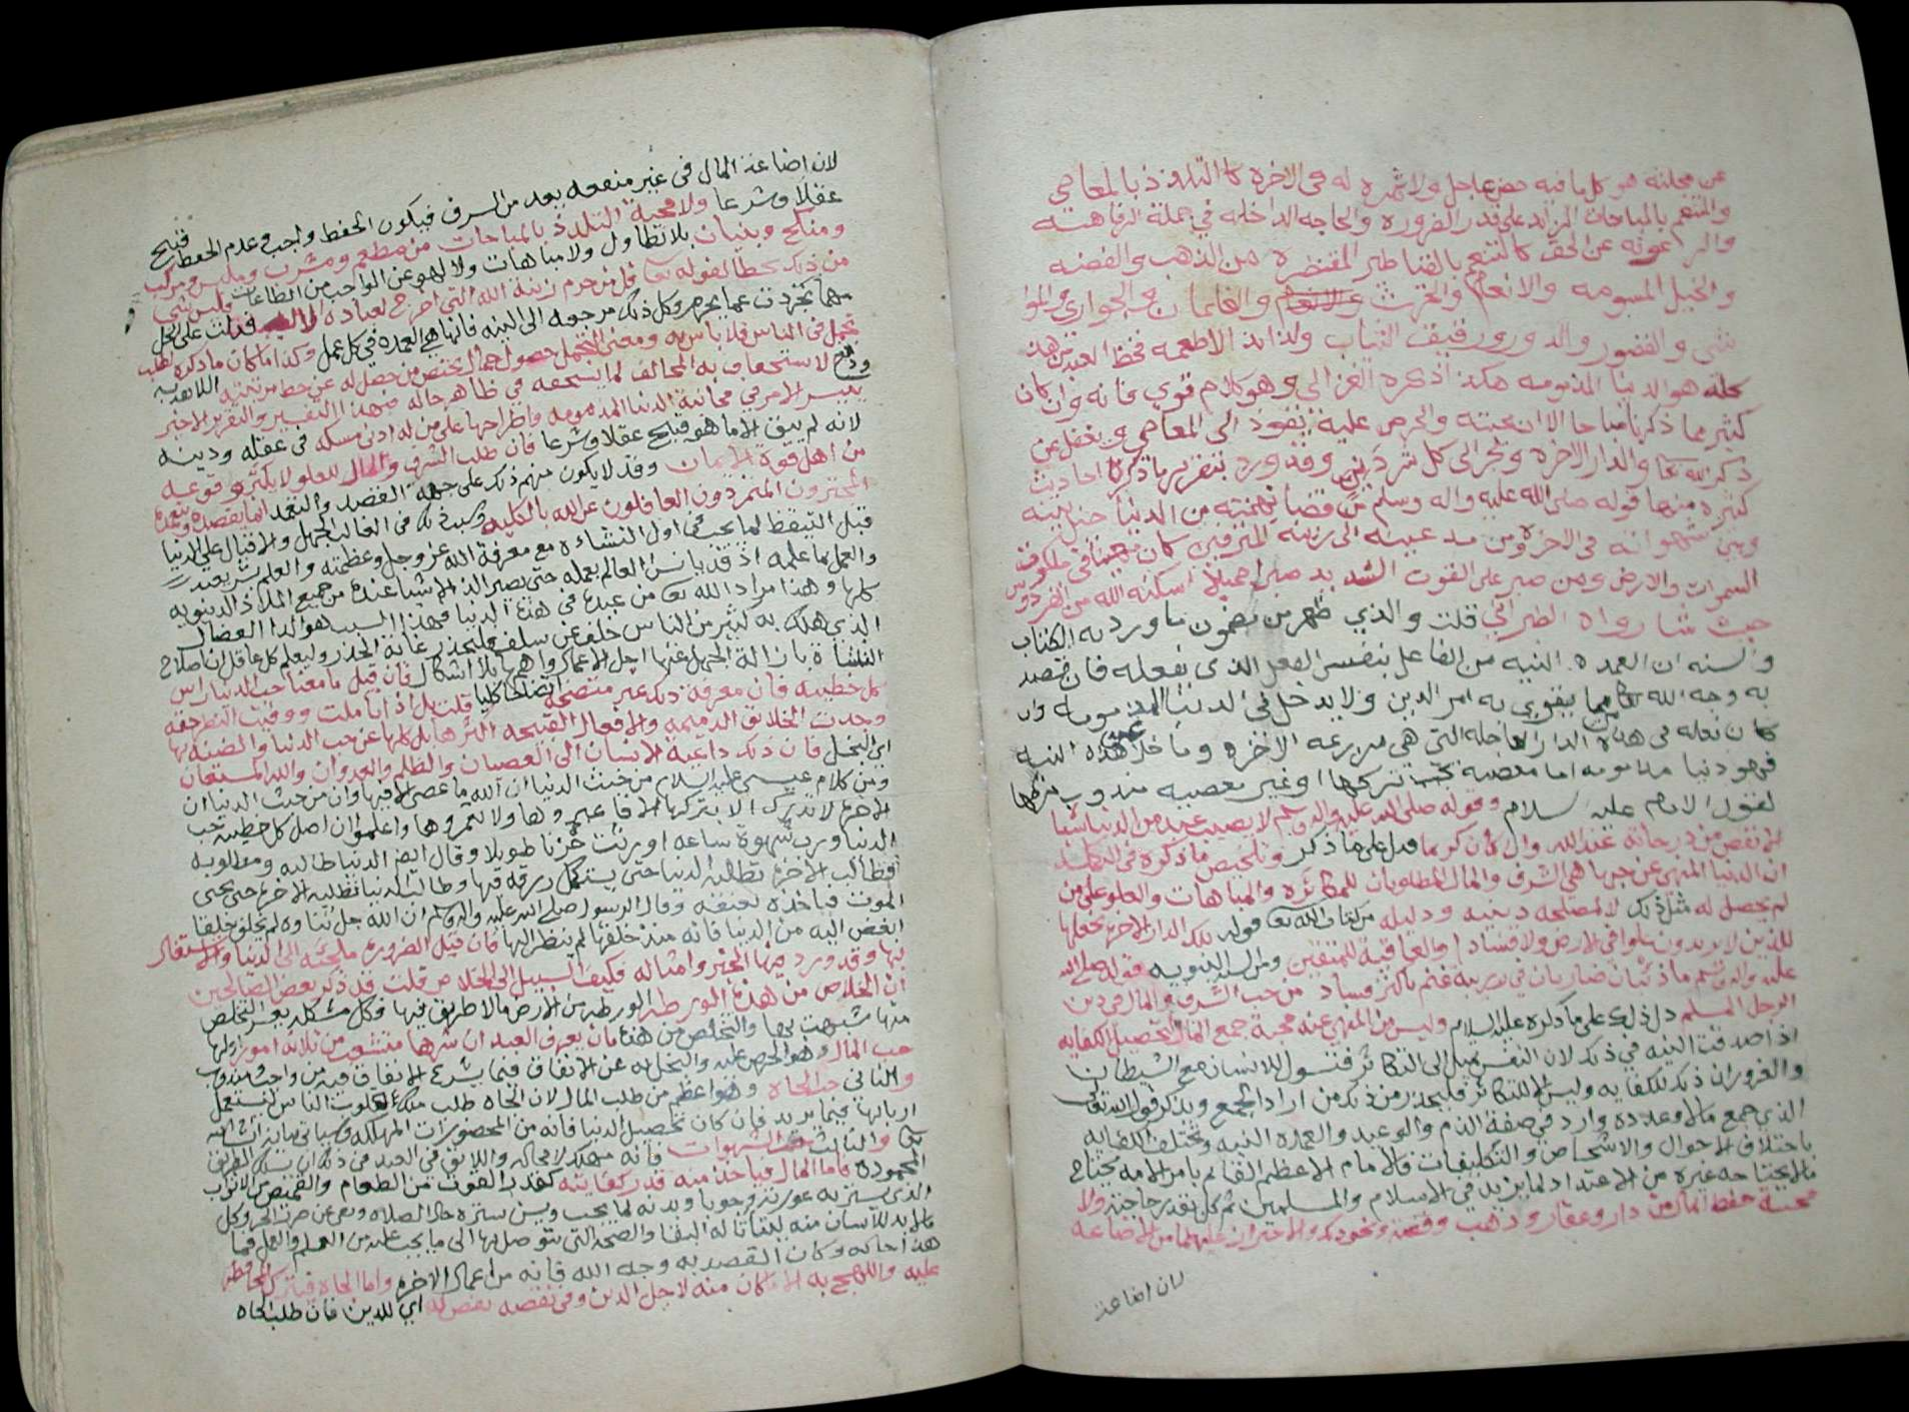 عن محلته هو كل ما فيه حض عاجل ولا ثمرة له في الاخرة كا التلذذ بالمعاصي
والتنعم بالمباحات الزايد على قدر الضروره والحاجه الداخله في جملة الرفاهته
والرعونه عن الحق كالتنعم بالقناطير المقنطره من الذهب والفضه
والخيل المسومه والانعام والحرث والغلمان والجواري والموا
شي والقصور والدور ورفيق الثياب ولذايذ الاطعمه فحظ العبد من هذ
كله هو الدنيا المذمومه هكذا ذكره الغزالي وهو كلام قوي فانه وان كان
كثير مما ذكرنا مباحا الا ان محبته والحرص عليه يقود الى المعاصي ويغفل عن
ذكر الله تعا والدار الاخره ويجر الى كل شر وقد ورد بتقرير ما ذكرنا احاديث
كثيره منها قوله صلى الله عليه واله وسلم من قضا نهمته من الدنيا حيل بينه
وبين شهواته في الاخره ومن مد عينيه الى زينه المترفين كان مهينا في ملكوت
السموات والارض ومن صبر على القوت الشديد صبرا جميلا اسكنه الله من الفردوس
حيث شا رواه الطبراني قلت والذي ظهر من مضمون ما ورد به الكتاب
والسنه ان العمده النيه من الفاعل بنفس الفعل الذي يفعله فان قصد
به وجه الله تعا مما يقوي به امر الدين ولا يدخل في الدنيا المذمومه وان
كان فعله في هذه الدار العاجله التي هي مزرعه الاخره وما خلا عن هذه النيه
فهو دنيا مذمومه اما معصيه يجب تركها او غير معصيه مندوب تركها
لقول الامام عليه السلام وقوله صلى الله عليه واله وسلم لا يصيب عبد من الدنيا شيا
الا نقص من درجاته عند الله وان كان كريما فدل على ما ذكر وتلخيص ما ذكره في
ان الدنيا المنهي عن حبها هي الشرف والمال المطلوبان للمكاثره والمباهات والعلو على من
لم يحصل له مثل ذلك لا لمصلحه دينيه ودليله من كتاب الله تعا قوله تلك الدار الاخره نجعلها
للذين لا يريدون علوا في الارض ولا فسادا والعاقبة للمتقين ومن السنه النبويه قوله صلى الله
عليه واله وسلم ما ذئبان ضاريان في زريبة غنم باكثر فساد من حب الشرف والمال في دين
الرجل المسلم دل ذلك على ما ذكره عليه السلام وليس من المنهي عنه محبة جمع المال لتحصيل الكفايه
اذا صدقت النيه في ذلك لان النفس تميل الى التكاثر فتسول للانسان مع الشيطان
والغرور ان ذلك للكفايه وليس الا للتكاثر فليحذر من ذلك من اراد الجمع ويذكر قول الله تعالى
الذي جمع مالا وعدده وارد في صفة الذم والوعيد والعمده النيه وتختلف الكفايه
باختلاف الاحوال والاشخاص والتكليفات فالامام الاعظم القائم بامر الامه يحتاج
مالا يحتاجه غيره من الاعتداد لما يزيد في الاسلام والمسلمين ثم كل بقدر حاجته ولا
محبة حفظ المال من دار وعقار وذهب وفضة ونحو ذلك والاحتراز عليهما من الاضاعه
لان اضاعة
لان اضاعة المال في غير منفعه يعد من السرف فيكون الحفظ واجب وعدم الحفظ قبيح
عقلا وشرعا ولا محبة التلذذ بالمباحات من مطعم ومشرب وملبس ومركب
ومنكح وبنيان بلا تطاول ولا مباهات ولا لهو عن الواجب من الطاعات وليس شي
من ذلك بخطا لقوله تعا قل من حرم زينة الله التي اخرج لعباده فدلت على الحل
مهما تجردت عما يحرم وكل ذلك مرجعه الى النيه فانها هي العمده في كل عمل وكذا ما كان ما ذكره لطلب
تجمل في الناس فلا باس به ومعنى التجمل حصول جمال يختص من حصل له عن حط مرتبته اللائقه به
ودفع لاستخفاف به المخالف لما يستحقه في ظاهر حاله فبهذا التفسير والتقرير الاخير
يتيسر الامر في مجانبة الدنيا المذمومه واطراحها على من له ادنى مسكه في عقله ودينه
لانه لم يبق الا ما هو قبيح عقلا وشرعا فان طلب الشرف والمال للعلو لا يكثر وقوعه
من اهل قوة الايمان وقد لا يكون منهم ذلك على جهة القصد والتعمد انما يقصده ويتعمده
المغترون المتمردون الغافلون عن الله بالكليه وسبب ذلك في الغالب الجهل والاقبال على الدنيا
قبل التيقظ لما يجب في اول النشاءه مع معرفة الله عز وجل وعظمته والعلم بشريعته
والعمل بما علمه اذ قد يانس العالم بعمله حتى يصير الذ الاشيا عنده من جميع الملاذ الدنيويه
كلها وهذا مراد الله تعا من عبده في هذه الدنيا فهذا السبب هو الدا العضال
الذي هلك به كثير من الناس خلف عن سلف فليحذر غاية الحذر وليعلم كل عاقل ان اصلاح
النشاة بازالة الجهل عنها اجل الاعمال واهمها بلا اشكال فان قيل ما معنا حب الدنيا راس
كل خطيئه فان معرفة ذلك غير متضحة اتضاحا كليا قلت بل اذا تاملت ووفيت النظر حقه
وجدت الخلائق الذميمه والافعال القبيحه اكثرها بل كلها عن حب الدنيا والضنه بها
اي البخل فان ذلك داعية الانسان الى العصيان والظلم والعدوان والله المستعان
ومن كلام عيسى عليه السلام من خبث الدنيا ان الله ما عصي الا فيها وان من خبث الدنيا ان
الاخره لا تدرك الا بتركها الا فاعبروها ولا تعمروها واعلموا ان اصل كل خطيئة حب
الدنيا ورب شهوة ساعه اورثت حزنا طويلا وقال ايضا الدنيا طالبه ومطلوبه
فطالب الاخره تطلبه الدنيا حتى يستكمل رزقه فيها وطالب الدنيا تطلبه الاخره حتى يجي
الموت فياخذه بعنقه وقال الرسول صلى الله عليه واله وسلم ان الله جل ثناوه لم يخلق خلقا
ابغض اليه من الدنيا فانه منذ خلقها لم ينظر اليها فان قيل الضروره ملجئه الى الدنيا والاشتغال
بها وقد ورد فيها الخبر وامثاله فكيف السبيل الى الخلاص قلت قد ذكر بعض الصالحين
ان الخلاص من هذه الورطه الورطه من الارض مالا طريق فيها وكل مشكله يعسر التخلص
منها شبهت بها والتخلص من هذه بان يعرف العبد ان شرها متشعب من ثلاثه امور اولها
حب المال وهو الحرص عليه والبخل به عن الانفاق فيما يشرع الانفاق فيه من واجب ومندوب
والثاني حب الجاه وهو اعظم من طلب المال لان الجاه طلب ملك قلوب الناس ليستعمل
اربابها فيما يريد فان كان تحصيل الدنيا فانه من المحضورات المهلكه وسياتي بيانه ان شا الله
تعا والثالث حب الشهوات فانه مهلك لا محاله واللائق في العبد في ذلك ان يسلك الطريق
المحموده فاما المال فياخذ منه قدر كفايته كقدر القوت من الطعام والقميص من الاثواب
الذي يستر به عورته وجوبا وبدنه لما يجب ويسن ستره حال الصلاه ويقي عن ضرر الحر وكل
مالا بد للانسان منه ليتاتا له البقا والصحه التي يتوصل بها الى ما يجب عليه من العلم والعمل فما
هذا حاله وكان القصد به وجه الله فانه من اعمال الاخره واما الجاه فيترك المحافظه
عليه واللهج به الا ما كان منه لاجل الدين وفي نقصه نقص له اي للدين فان طلب الجاه